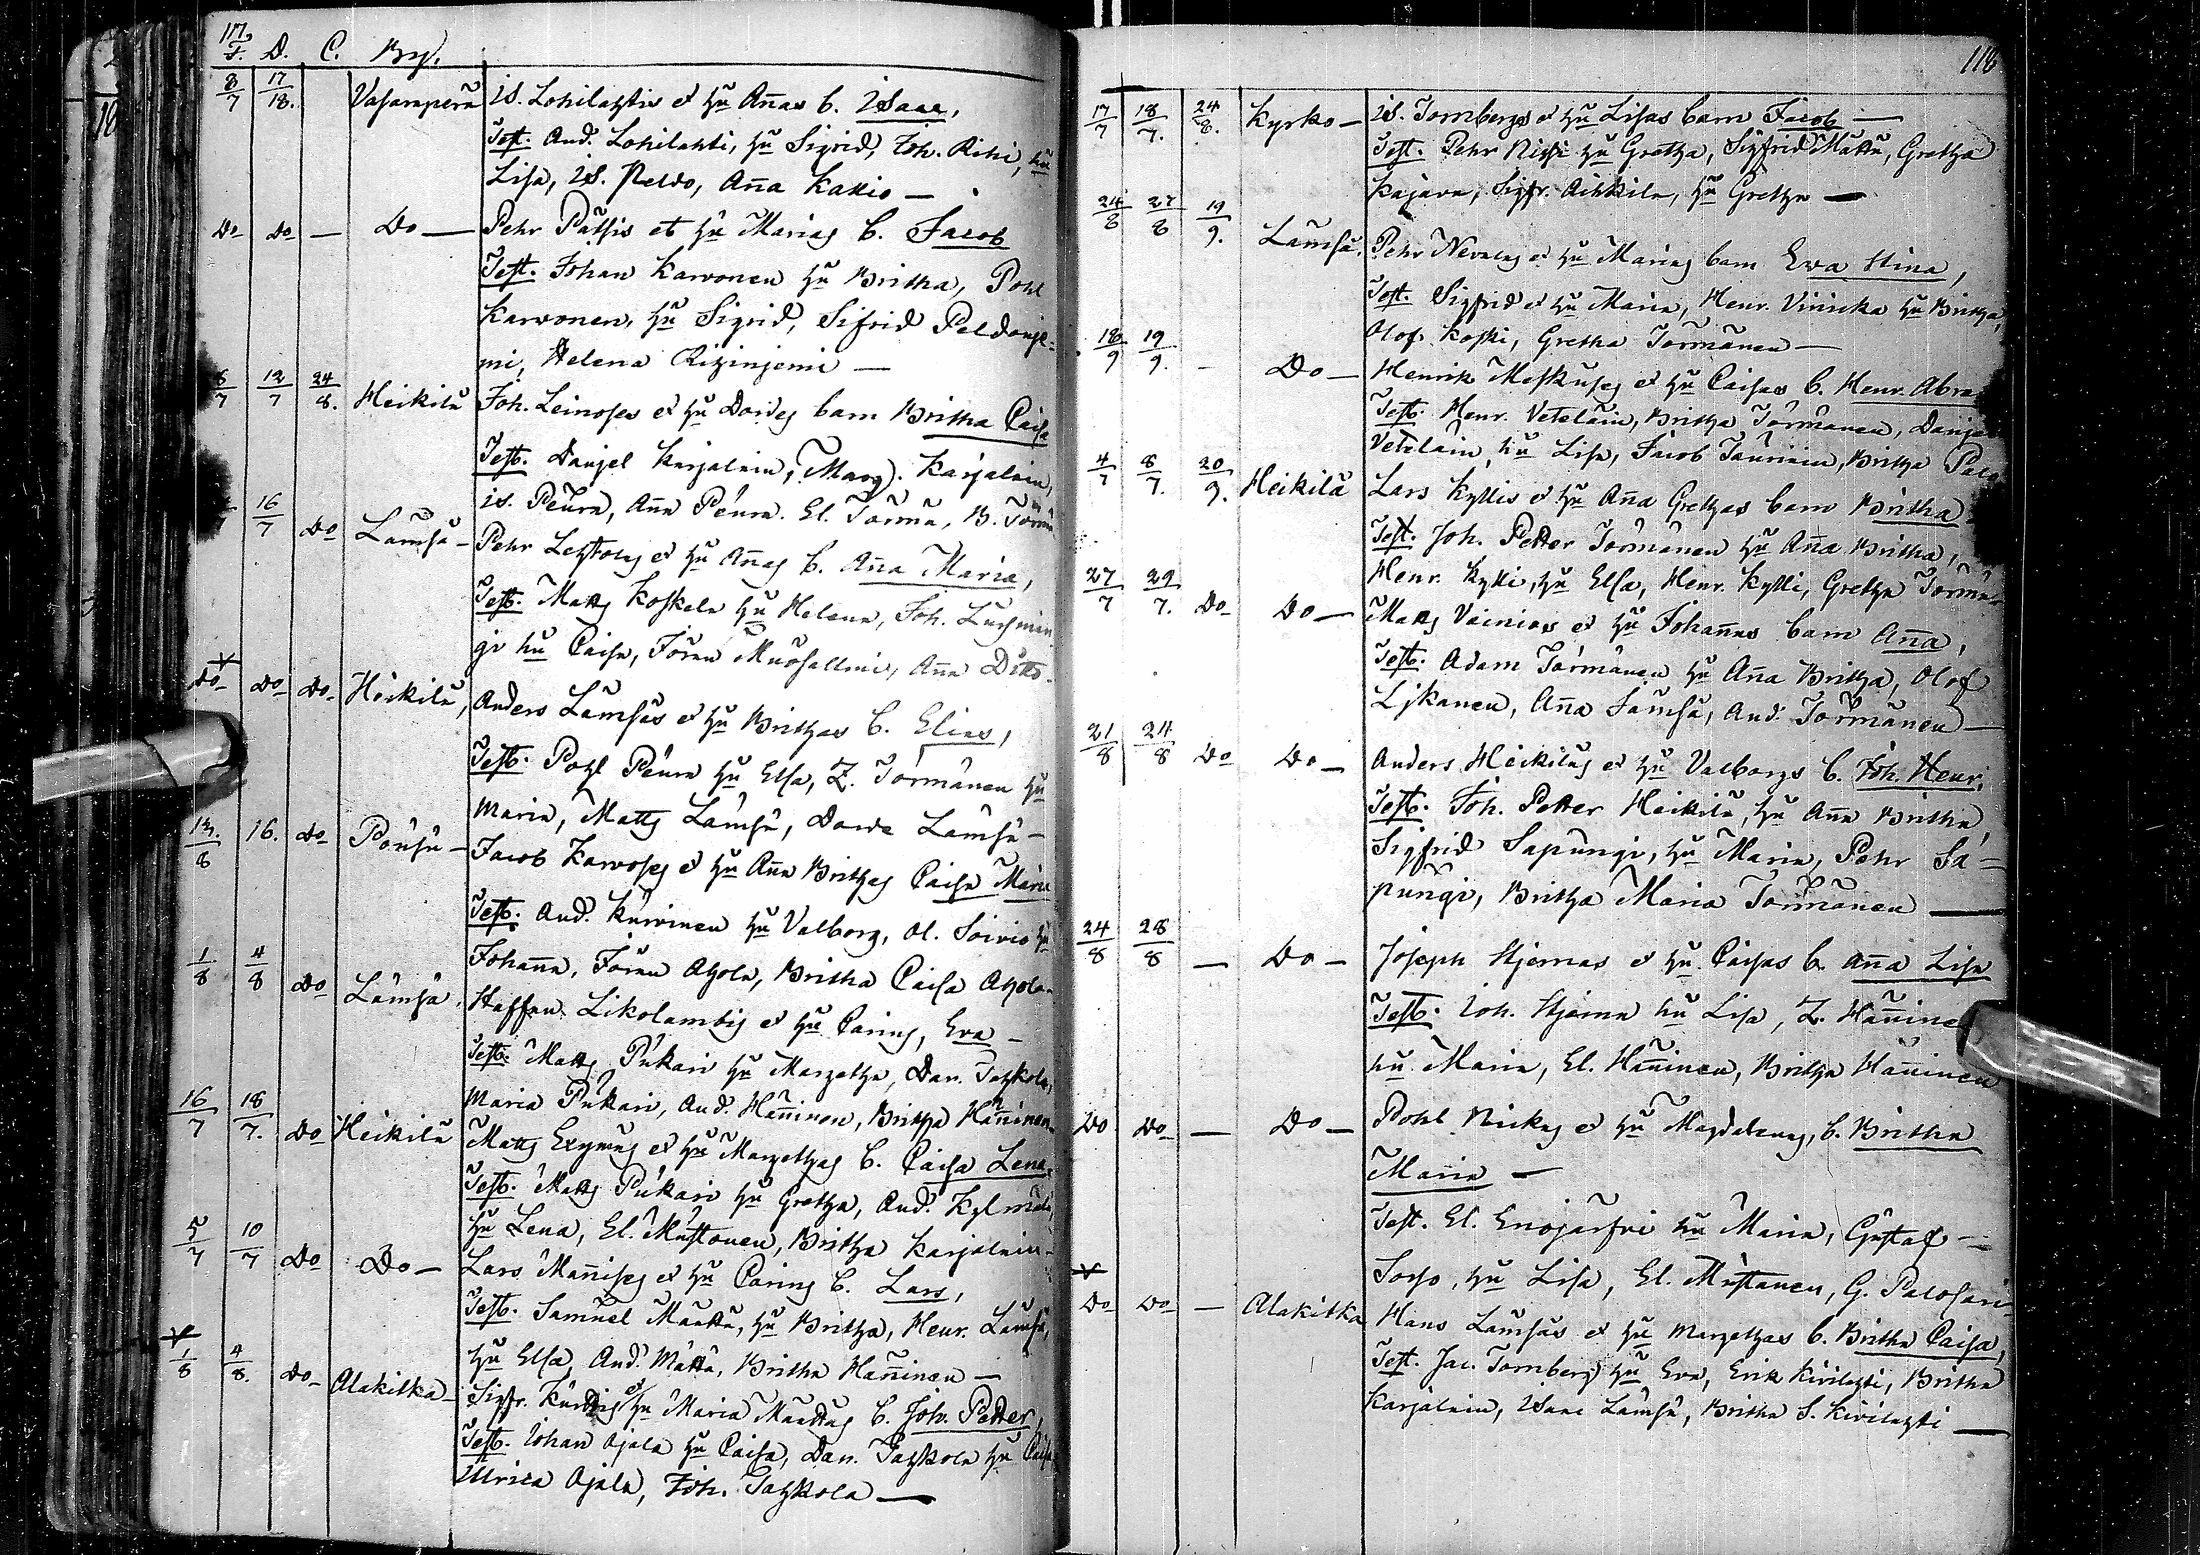 117
F. D. C. By.
8/7 17/18. Vasarаperä Is. Lohilahtis et hu Annas b. Isaac,
Test. And. Lohilahti, hu Sigrid, Joh. Rihi, hu
Lisa, Is. Peldo, Anna Kallio —
Do Do — Do — Pehr Pätsis et hu Marias b. Jacob
Test. Johan Karvonen hu Britha, Pohl
Karvonen, hu Sigrid, Sifrid Peldonje=
mi, Helena Rizinjemi —
8/7 12/7 24/8. Heikilä Joh. Leinoses et hu Dordes barn Britha Caisa
Test. Danjel Karjalain, Marg. Karjalain,
is. Peura, Anna Peura. El. Törmä, B. Törmä
16/7 Do Lämsä — Pehr Lehtolas et hu Annas b. Anna Maria,
Test. Matts Koskela hu Helena, Joh.
gi hu Caisa, Jöran Muosallmi, Anna Ditto.
Do Do Do Heikilä, Anders Lämsäs et hu Brithas b. Elias,
Test. Pohl Peura hu Elsa, Z. Törmänen hu
Maria, Matts Lämsä, Dorde Lämsä —
13./8 16. Do Pousu — Jacob Karvoses et hu Anna Brithas Caisa Maria
Test. And. Kurvinen hu Valborg, Ol. Soivio hu
Johanna, Jöran Ahola, Britha Caisa Ahola
1/8 4/8 Do Lämsä. Staffan Likolambis et hu Carins, Eva —
Test. Matts Pukari hu Margetha, Dan. Tahkola,
Maria Pukari, And. Hänninen, Britha Hänninen
16/7 18/7. Do Heikilä Matts Erymäs et hu Margethas b. Caisa Lena,
Test. Matts Pukari hu Gretha, And. Kylmälä,
hu Lena, El. Mustonen, Britha Karjalain —
5/7 10/7 Do Do — Lars Mannises et hu Carins b. Lars,
Test. Samuel Määttä, hu Britha, Henr. Lämsä,
hu Elsa, And. Mättä, Britha Hänninen —
1/8 4/8. Do Alakitka — Sigfr. Kurttis et hu Maria Määttäs b. Joh. Petter,
Test. Johan Ajala hu Caisa, Dan. Tahkola hu Caisa
Ulrica Ajala, Joh. Tahkola —
118
17/7 18/7. 24/8. Kyrko — Is. Tornbergs et hu Lisas barn Jacob —
Test. Pehr Nissi hu Gretha, Sigfrid Mättä, Gretha
Kajava, Sigfr. Aikkila, hu Gretha —
24/8 27/8 19/9. Lämsä. Pehr Nevalas et hu Marias barn Eva Stina,
Test. Sigfrid et hu Maria, Henr. Viricka hu Britha,
Olof Koski, Gretha Törmänen —
18/9 19/9. — Do — Henrik Moskuses et hu Caisas b. Henr. Abra
Test. Henr. Vetelain, Britha Törmänen, Danjel
Vetelain, hu Lisa, Jacob Tauriain, Britha Palo
4/7 8/7. 20/9. Heikilä Lars Kyllis et hu Anna Grethas barn Britha
Test. Joh. Petter Törmänen hu Anna Britha,
Henr. Kylli, hu Elsa, Henr. Kylli, Gretha Törmä
27/7 29/7. Do Do — Matts Väiniös et hu Johannas barn Anna,
Test. Adam Törmänen hu Anna Britha, Olof
Ljkanen, Anna Lämsä, And. Törmänen —
21/8 24/8 Do Do — Anders Heikiläs et hu Valborgs b. Joh. Henr.
Test. Joh. Petter Heikilä, hu Anna Britha,
Sigfrid Sapungi, hu Maria, Pehr Sa=
pungi, Britha Maria Törmänen —
24/8 28/8 — Do — Joseph Stjernas et hu Caisas b. Anna Lisa
Test. Joh. Stjerna hu Lisa, Z. Hännine
hu Maria, El. Hänninen, Britha Hänninen
Do Do — Do — Pohl Rickas et hu Magdalenas, b. Britha
Maria —
Test. El. Enojärfvi hu Maria, Gustaf —
Sorso, hu Lisa, El. Mustanen, G. Palosari
Do Do — Alakitka Hans Lämsäs et hu Margethas b. Britha Caisa,
Test. Jac. Tornberg hu Eva, Erik Kivilahti, Britha
Karjalain, Isaac Lämsä, Britha S. Kivilahti —